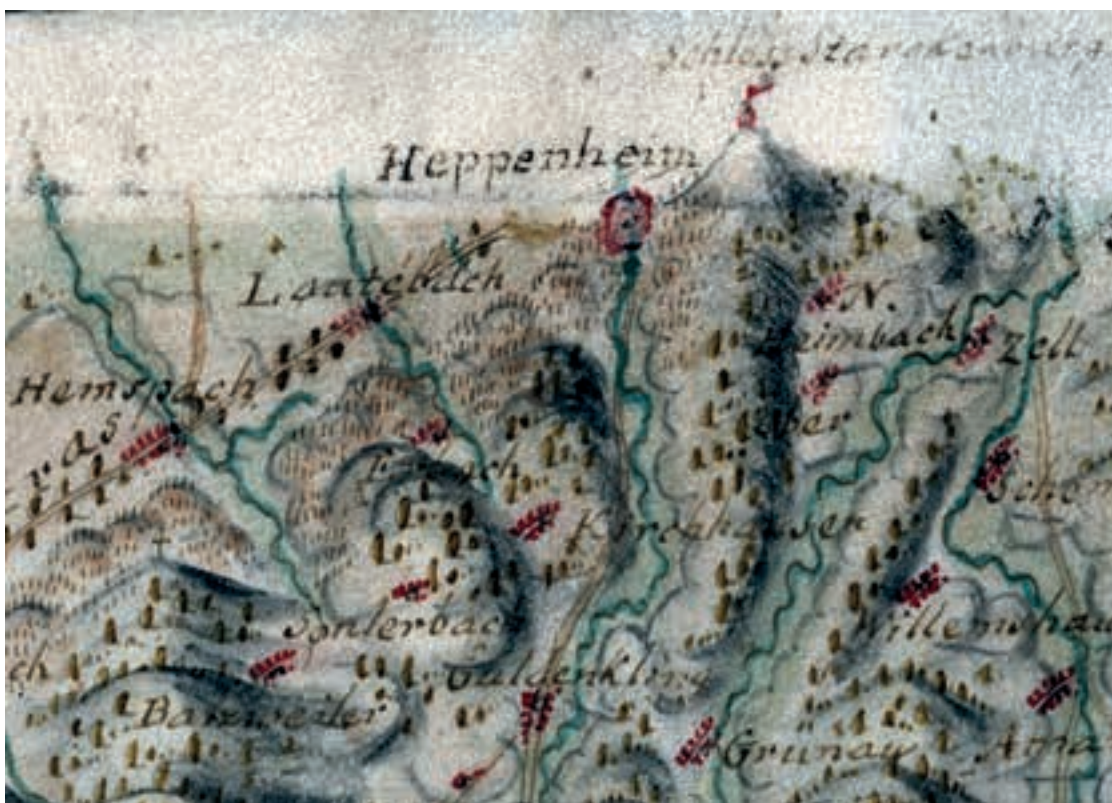 Schloss Starckenburg
Heppenheim
Lautebach
N.
Laimbach
Zell
Hemspach
ras
Erbach
Kirchhausen
Schon
Willemshau
Sonlerbach
ch
Guldenkling
Barweiler
Grünau
Ama